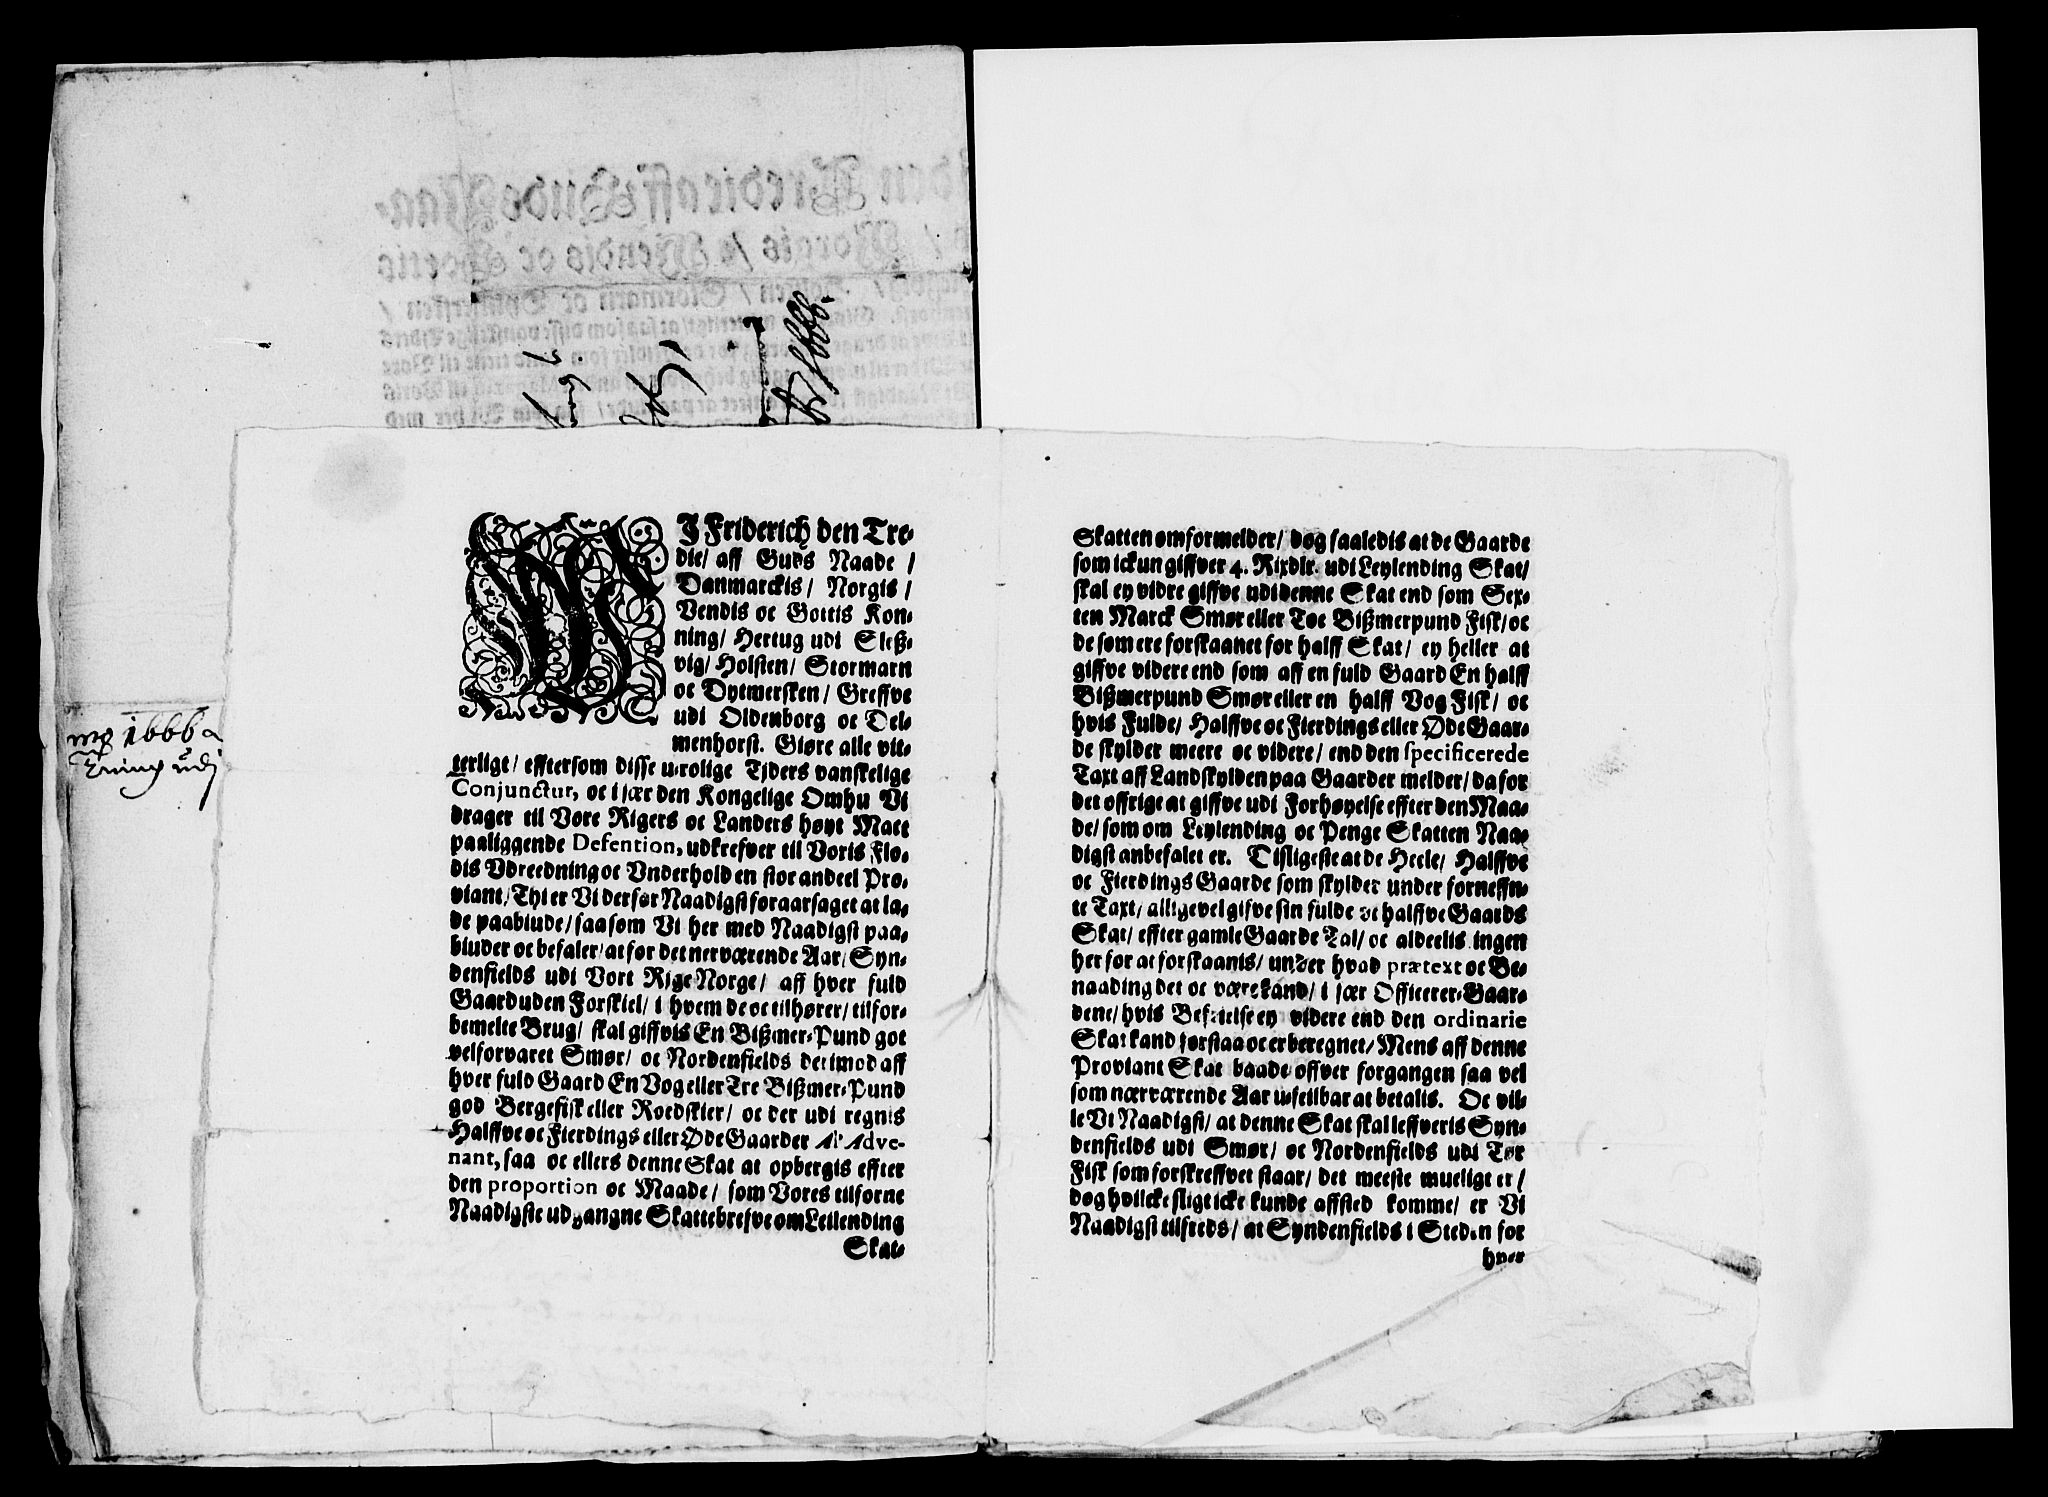 WJ Friderich den Tre-
die/ aff Guds Naade /
Danmarckis/ Norgis /
Vendis oc Gottis Kon-
ning/ Hertug udi Sleß-
vig/ Holsten/ Stormarn
oc Dytmersken/ Greffve
udi Oldenborg oc Del-
menhorst. Giøre alle vit-
terligt/ efftersom disse urolige Tjders vanskelige
Conjunctur, oc i sær den Kongelige Omhu Vi
drager til Vore Rigers oc Landers høyt Mact
paaliggende Defention, udkrefver til Voris Flo-
dis Vdreedning oc Vnderhold en stor andeel Pro-
viant/ Thi er Vi derfor Naadigst foraarsaget at la-
de paabiude/ saasom Vi her med Naadigst paa-
biuder oc befaler/ at for det nerværende Aar/ Syn-
denfields udi Vort Rige Norge/ aff hver fuld
Gaard uden Forskiel/ i hvem de oc tilhører/ tilfor-
bemelte Brug/ skal giffvis En Bißmer-Pund got
velforvaret Smør/ oc Nordenfields derimod aff
hver fuld Gaard En Vog eller Tre Bißmer-Pund
god Bergefisk eller Rodskier/ oc der udi regnis
Halffve oc Fierdings eller Øde Gaarder Al' Adve-
nant, saa oc ellers denne Skat at opbergis effter
den proportion oc Maade/ som Vores tilforne
Naadigste udgangne Skattebrefve om Leilending
Skat-
Skatten omformelder/ dog saaledis at de Gaarde
som ickun giffver 4. Rixdlr. udi Leylending Skat/
skal ey vidre giffve udi denne Skat end som Sex-
ten Marck Smør eller Toe Bißmerpund Fisk/ oc
de som ere forskaanet for halff Skat/ ey heller at
giffve videre end som aff en fuld Gaard En halff
Bißmerpund Smør eller en halff Vog Fisk/ oc
hvis Fulde/ Halffve oc Fierdings eller Øde Gaar-
de skylder meere oc videre/ end den specificerede
Taxt aff Landskylden paa Gaarder melder/ da for
det offrige at giffve udi Forhøyelse effter den Maa-
de/ som om Leylending oc Penge Skatten Naa-
digst anbefalet er. Tisligeste at de Heele/ Halffve
oc Fierdings Gaarde som skylder under forneffn-
te Taxt/ alligevel gifve sin fulde oc halffve Gaards
Skat/ effter gamle Gaarde Tal/ oc aldeelis ingen
her for at forskaanis/ under hvad prætext oc Be-
naading det oc være kand/ i sær Officerer-Gaar-
dene/ hvis Befrielse ey videre end den ordinarie
Skat kand forstaa oc er beregnet/ Mens aff denne
Proviant Skat baade offver forgangen saa vel
som nærværende Aar ufeilbar at betalis. Oc vil-
le Vi Naadigst/ at denne Skat skal leffveris Syn-
denfields udi Smør/ oc Nordenfields udi Tør
Fisk som forskreffvet staar/ det meeste mueligt er/
dog hvilcke sligt icke kunde affsted komme/ er Vi
Naadigst tilfreds/ at Syndenfields i Steden for
hver
1666
udj
1666.